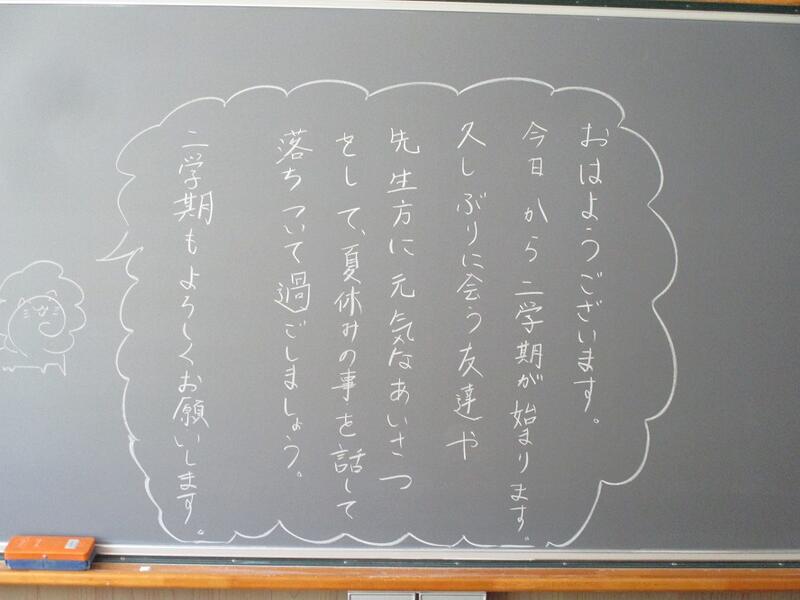 おはようございます。
今日から二学期が始まります。
久しぶりに会う友達や
先生方に元気なあいさつ
をして、夏休みの事を話して
落ちついて過ごしましょう。
二学期もよろしくお願いします。